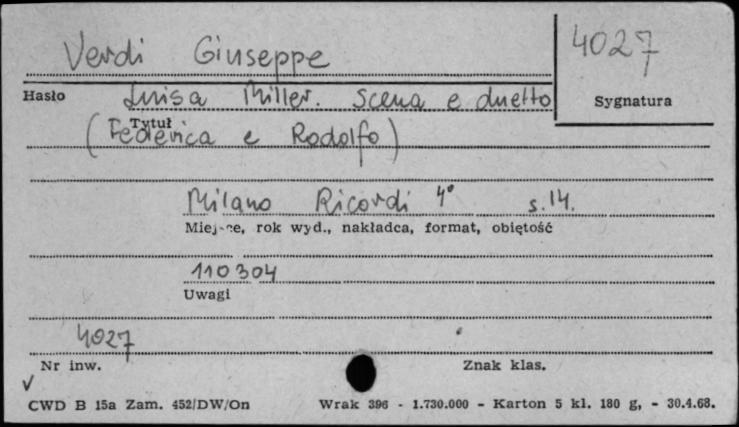 Verdi Giuseppe
4027
Hasło
Luisa Miller. Scena e duetto
Sygnatura
Tytuł
(Federica e Rodolfo)
Milano Ricordi 4° s. 14.
Miejsce, rok wyd., nakładca, format, objętość
110304
Uwagi
4027
Nr inw.
Znak klas.
CWD B 15a Zam. 452/DW/On Wrak 396 - 1.730.000 - Karton 5 kl. 180 g, - 30.4.68.